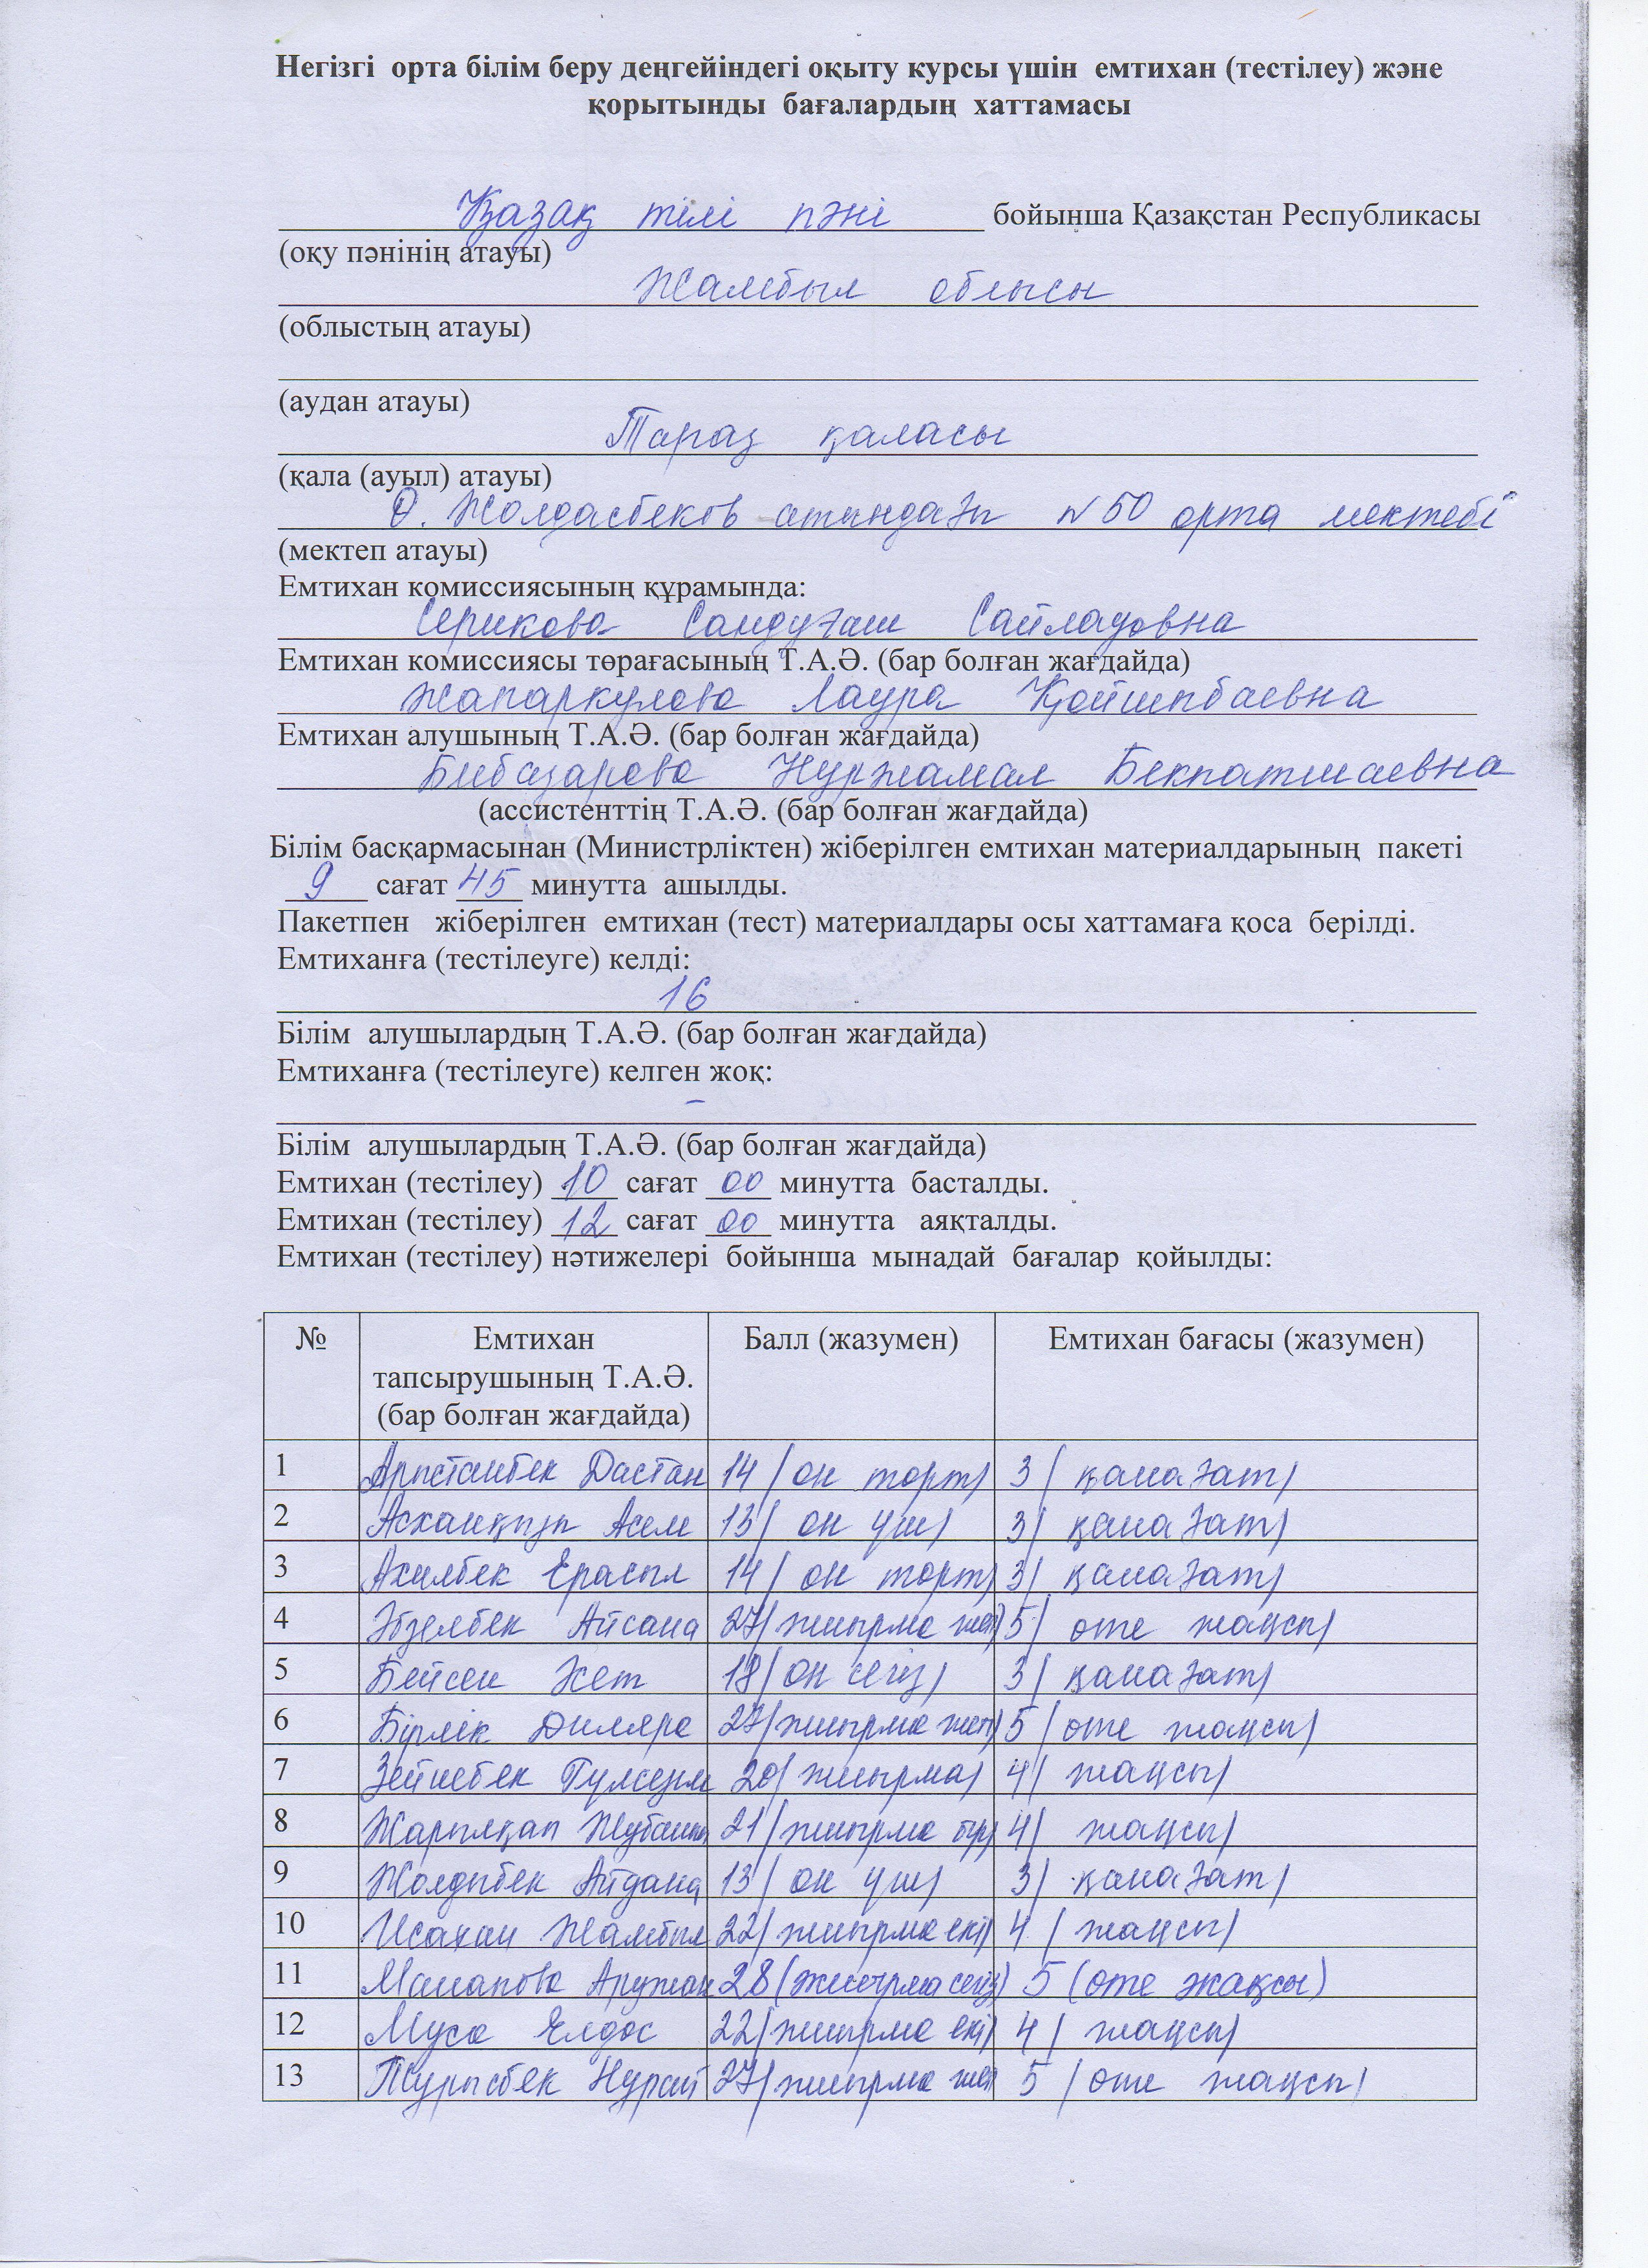 Негізгі орта білім беру деңгейіндегі оқыту курсы үшін емтихан (тестілеу) және
қорытынды бағалардың хаттамасы
Қазақ тілі пәні бойынша Қазақстан Республикасы
(оқу пәнінің атауы)
Жамбыл облысы
(облыстың атауы)
(аудан атауы)
Тараз қаласы
(қала (ауыл) атауы)
Ө. Жолдасбеков атындағы №50 орта мектебі
(мектеп атауы)
Емтихан комиссиясының құрамында:
Серикова Сандуғаш Сайладовна
Емтихан комиссиясы төрағасының Т.А.Ә. (бар болған жағдайда)
Жапаркулова Лаура Қойшыбаевна
Емтихан алушының Т.А.Ә. (бар болған жағдайда)
Бибазарова Нуржамал Бекпатшаевна
(ассистенттің Т.А.Ә. (бар болған жағдайда)
Білім басқармасынан (Министрліктен) жіберілген емтихан материалдарының пакеті
9 сағат 45 минутта ашылды.
Пакетпен жіберілген емтихан (тест) материалдары осы хаттамаға қоса берілді.
Емтиханға (тестілеуге) келді:
16
Білім алушылардың Т.А.Ә. (бар болған жағдайда)
Емтиханға (тестілеуге) келген жоқ:
–
Білім алушылардың Т.А.Ә. (бар болған жағдайда)
Емтихан (тестілеу) 10 сағат 00 минутта басталды.
Емтихан (тестілеу) 12 сағат 00 минутта аяқталды.
Емтихан (тестілеу) нәтижелері бойынша мынадай бағалар қойылды:
№ Емтихан тапсырушының Т.А.Ә. (бар болған жағдайда) Балл (жазумен) Емтихан бағасы (жазумен)
1 Арыстанбек Дастан 14 (он төрт) 3 (қанағат)
2 Асханқызы Асем 13 (он үш) 3 (қанағат)
3 Ахилбек Ерасыл 14 (он төрт) 3 (қанағат)
4 Әбзелбек Айсана 27 (жиырма жеті) 5 (өте жақсы)
5 Бейсен 18 (он сегіз) 3 (қанағат)
6 Бірлік Диляра 27 (жиырма жеті) 5 (өте жақсы)
7 Зейнебек Гүлсезім 20 (жиырма) 4 (жақсы)
8 Жарылқап 21 (жиырма бір) 4 (жақсы)
9 Жолдыбек Айдана 13 (он үш) 3 (қанағат)
10 Исахан Жамбыл 22 (жиырма екі) 4 (жақсы)
11 Манапова Аружан 28 (жиырма сегіз) 5 (өте жақсы)
12 Муса Елдос 22 (жиырма екі) 4 (жақсы)
13 Тұрысбек Нұрай 27 (жиырма жеті) 5 (өте жақсы)